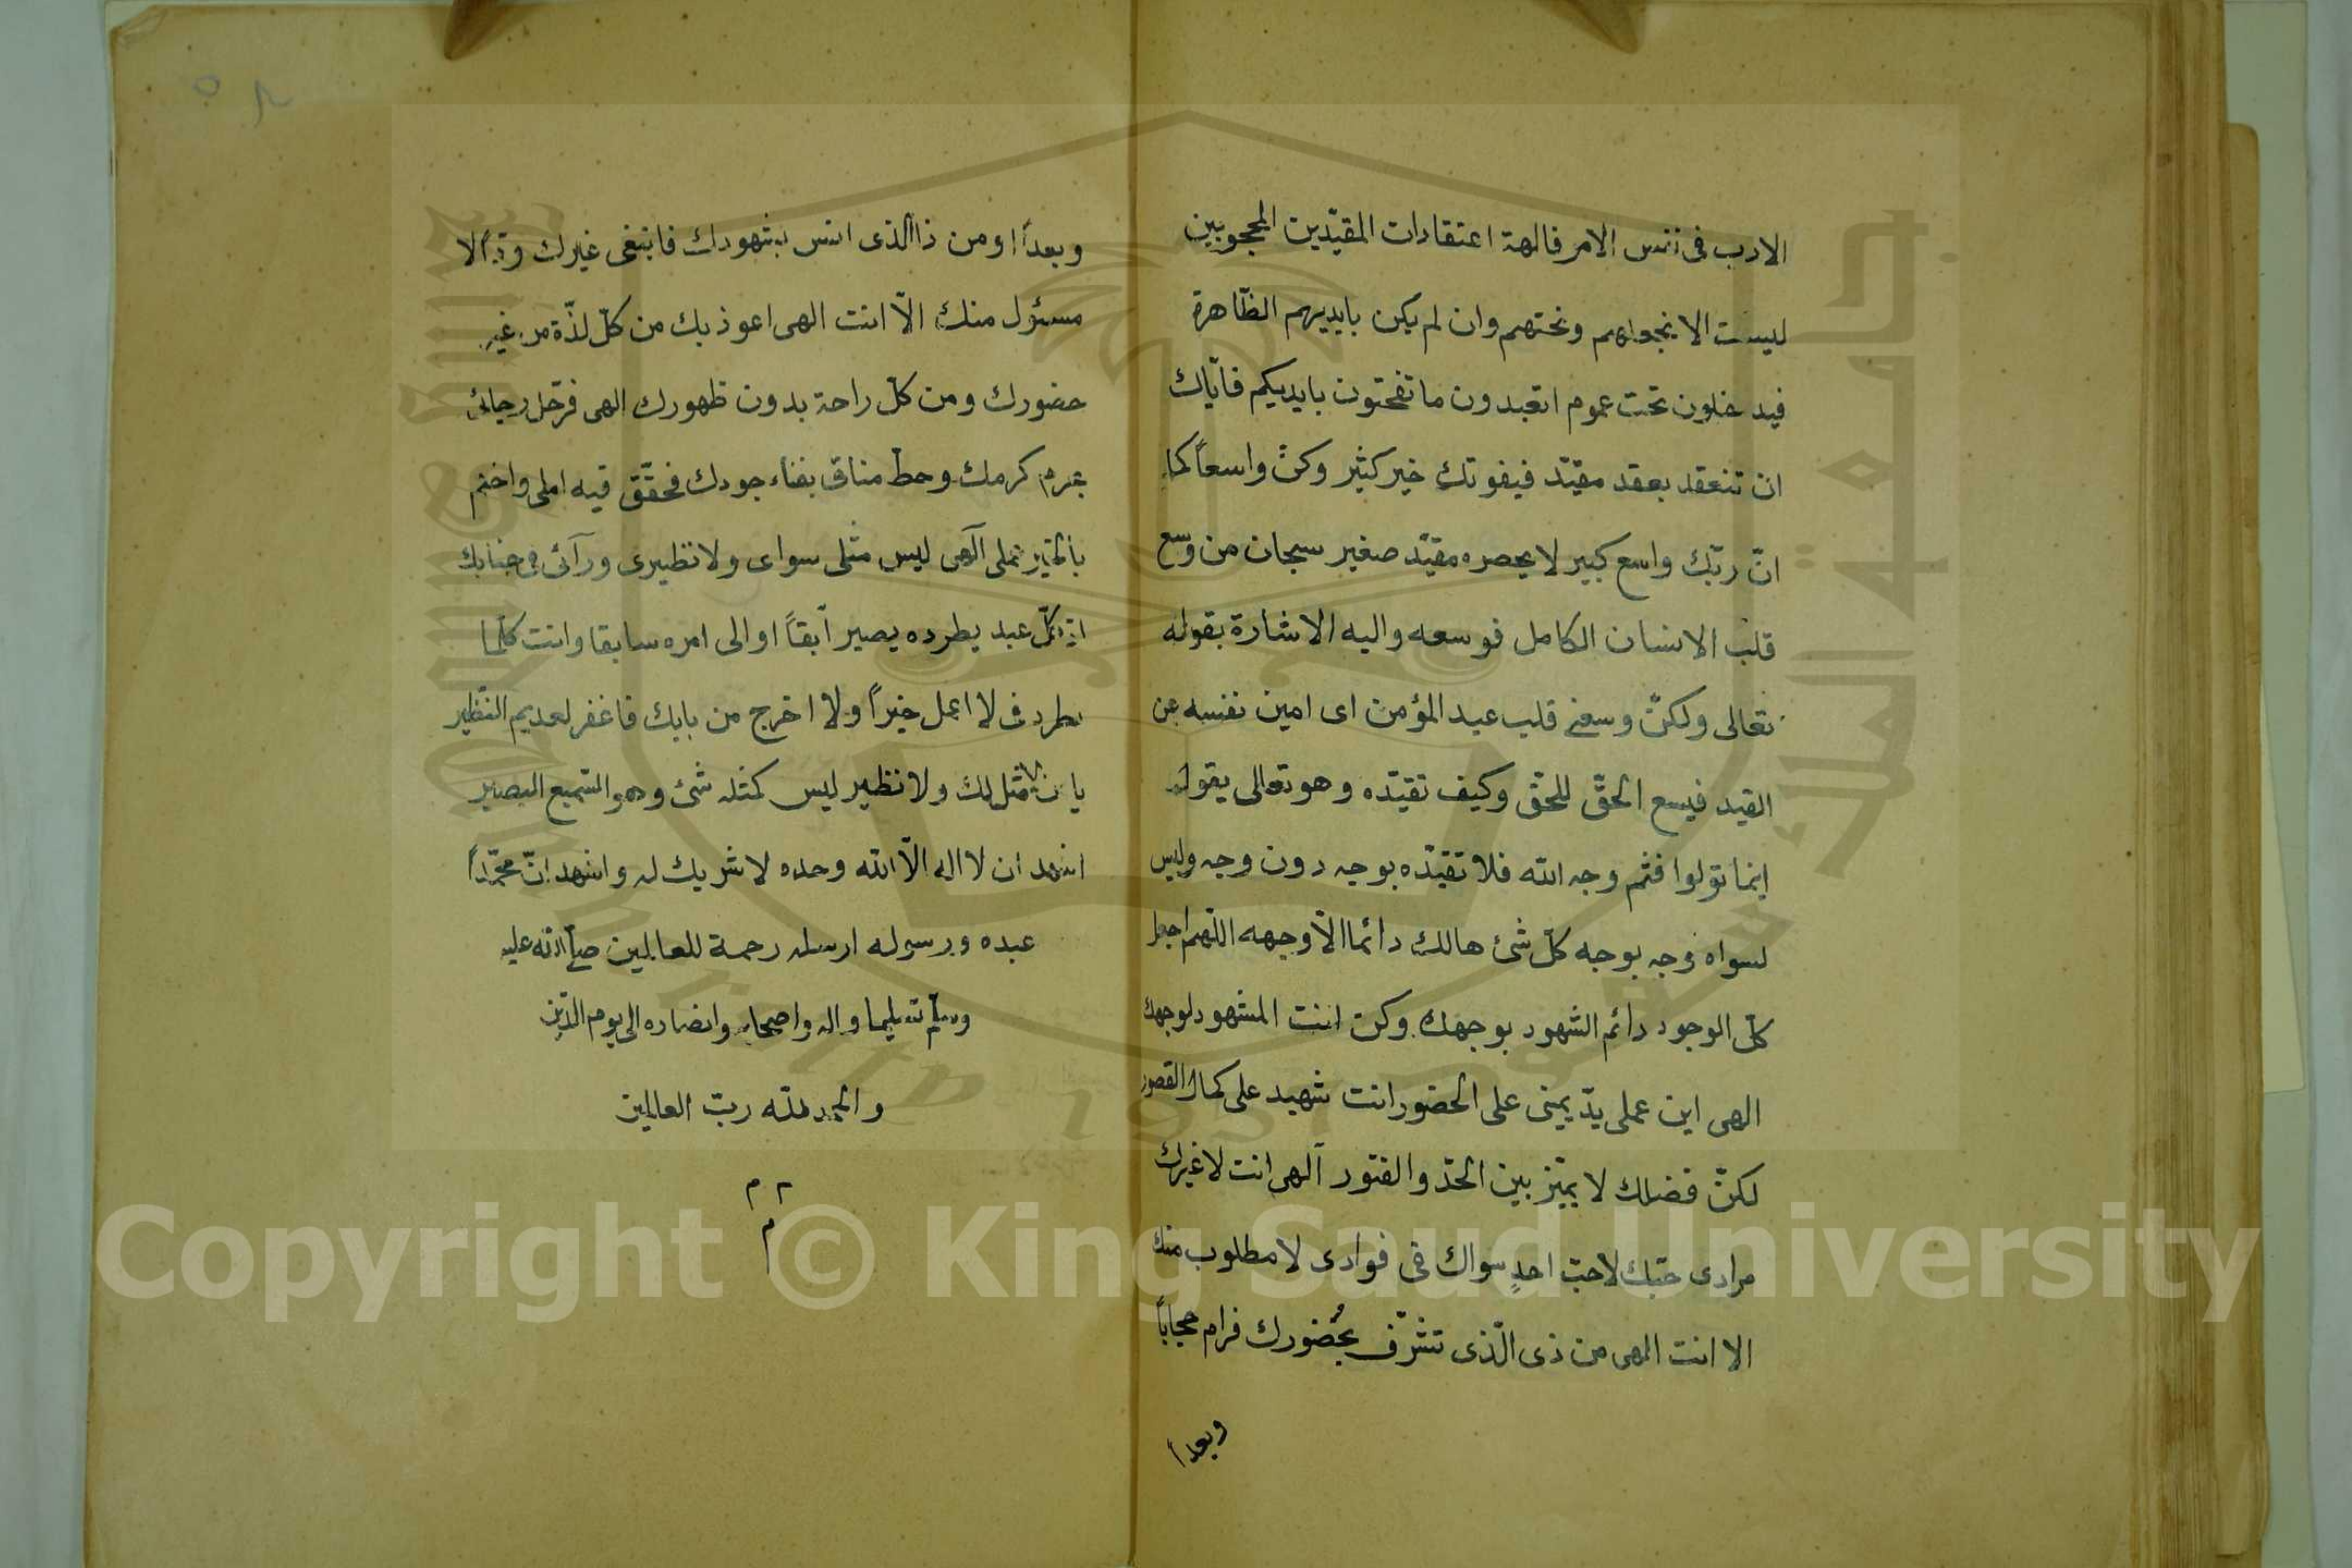 الادب فى نفس الامر فالهة اعتقادات المقيّدين المحجوبين
ليست الا بنجعلهم ونحتهم وان لم يكن بايديهم الظّاهرة
فيدخلون تحت عموم اتعبدون ما تنحتون بايديكم فايّاك
ان تنعقد بعقد مقيّد فيفوتك خير كثير وكن واسعاً كما
انّ ربّك واسع كبير لا يحصره مقيّد صغير سبحان من وسع
قلب الانسان الكامل فوسعه واليه الاشارة بقوله
تعالى ولكن وسعنى قلب عبد المؤمن اى امين نفسه عن
القيد فيسع الحقّ للحقّ وكيف تقيّده وهو تعالى يقول
اينما تولوا فثم وجه الله فلا تقيّده بوجه دون وجه وليس
لسواه وجه بوجه كلّ شئ هالك دائما الّا وجهه اللّهم اجعل
كلّ الوجود دائم الشهود بوجهك وكن انت المشهود لوجهك
الهى اين عملى يدّ يمينى على الحضور انت شهيد على كمال القصور
لكنّ فضلك لا يميّز بين الجدّ والفتور آلهى انت لا غيرك
مرادى حبّك لا حبّ احدٍ سواك فى فوادى لا مطلوب منك
الا انت الهى من ذى الّذى تشرّف بحُضورك فرام حجاباً
وبعداً
وبعداً او من ذا الذى انس بشهودك فابتغى غيرك ودّاً لا
مسئول منك الّا انت الهى اعوذ بك من كلّ لذّة من غير
حضورك ومن كلّ راحة بدون ظهورك الهى فرحل رجائى
بحرم كرمك وحطّ مناقى بفناء جودك فحقّق فيه املى واختم
بالخير عملى آلهى ليس مثلى سواى ولا نظيرى ورآئى فى جنابك
انّ كلّ عبد يطرده يصير آبقاً او الى امره سابقا وانت كلّما
بطردنى لا اعمل خيراً ولا اخرج من بابك فاغفر لعديم النّظير
يا من لا مثل لك ولا نظير ليس كمثله شئ وهو السّميع البصير
اشهد ان لا اله الّا الله وحده لا شريك له واشهد انّ محمّداً
عبده ورسوله ارسله رحمة للعالمين صلّى الله عليه
وسلّم تسليما واله واصحابه وانصاره الى يوم الدّين
والحمد لله ربّ العالمين
م م
م
Copyright © King Saud University